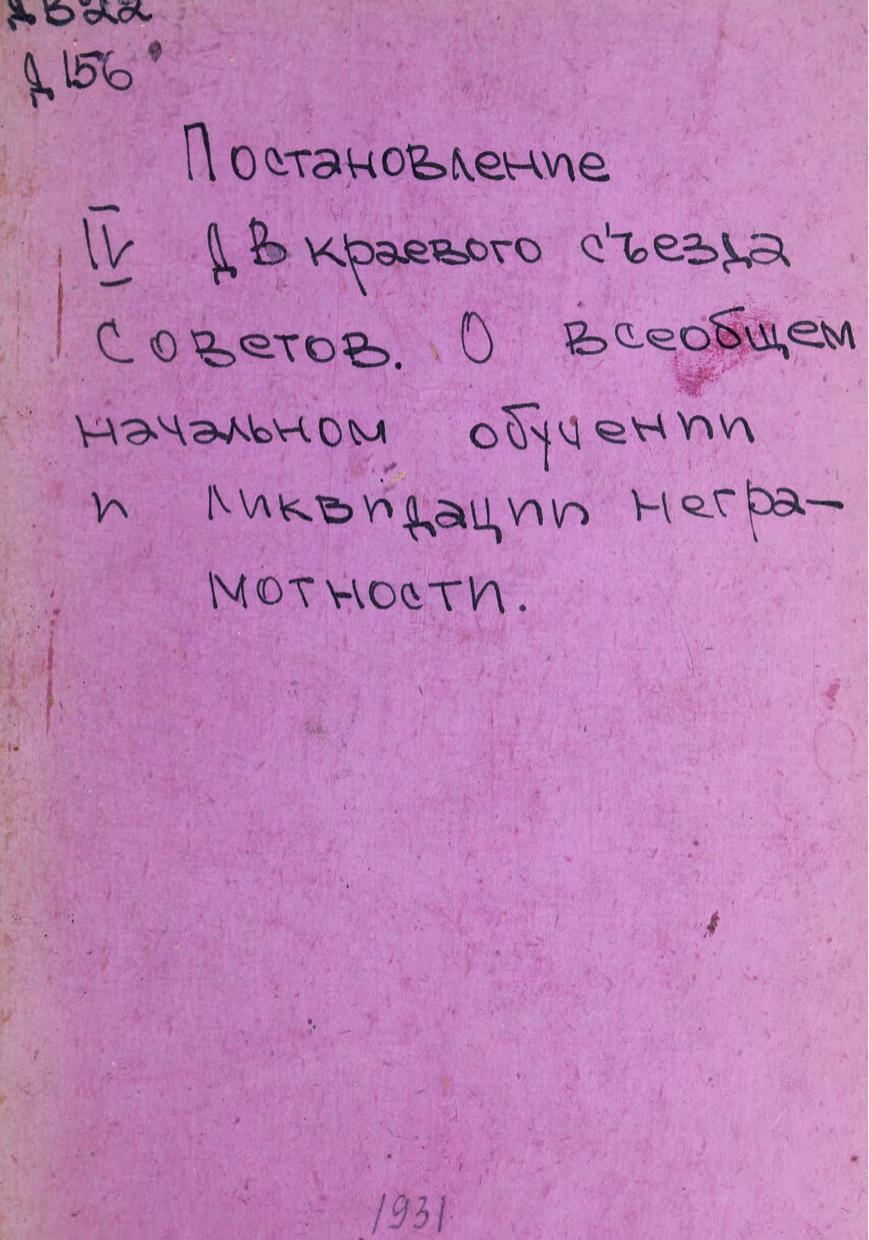 ДВ22
Д156
Постановление
IV ДВ краевого съезда
Советов. О всеобщем
начальном обучении
и ликвидации негра-
мотности.
1931